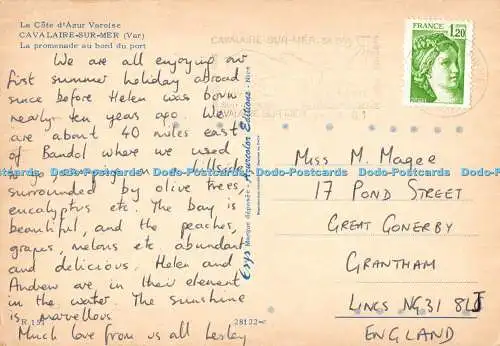 La Côte d'Azur Varoise
CAVALAIRE-SUR-MER (Var)
La promenade au bord du port
We are all enjoying our
first summer holiday abroad
since before Helen was born
nearly ten years ago. We
are about 40 miles east
of Bandol where we used
to go camping on a hillside
surrounded by olive trees,
eucalyptus etc. The bay is
beautiful, and the peaches,
grapes, melons etc abundant
and delicious. Helen and
Andrew are in their element
in the water. The sunshine
is marvellous.
Much love from us all Lesley
R 151
28122-c
Marque déposée - Aquacolor Editions - Nice
CAVALAIRE-SUR-MER
FRANCE
1,20
MISS M. MAGEE
17 POND STREET
GREAT GONERBY
GRANTHAM
LINCS NG31 8LJ
ENGLAND
Dodo-Postcards